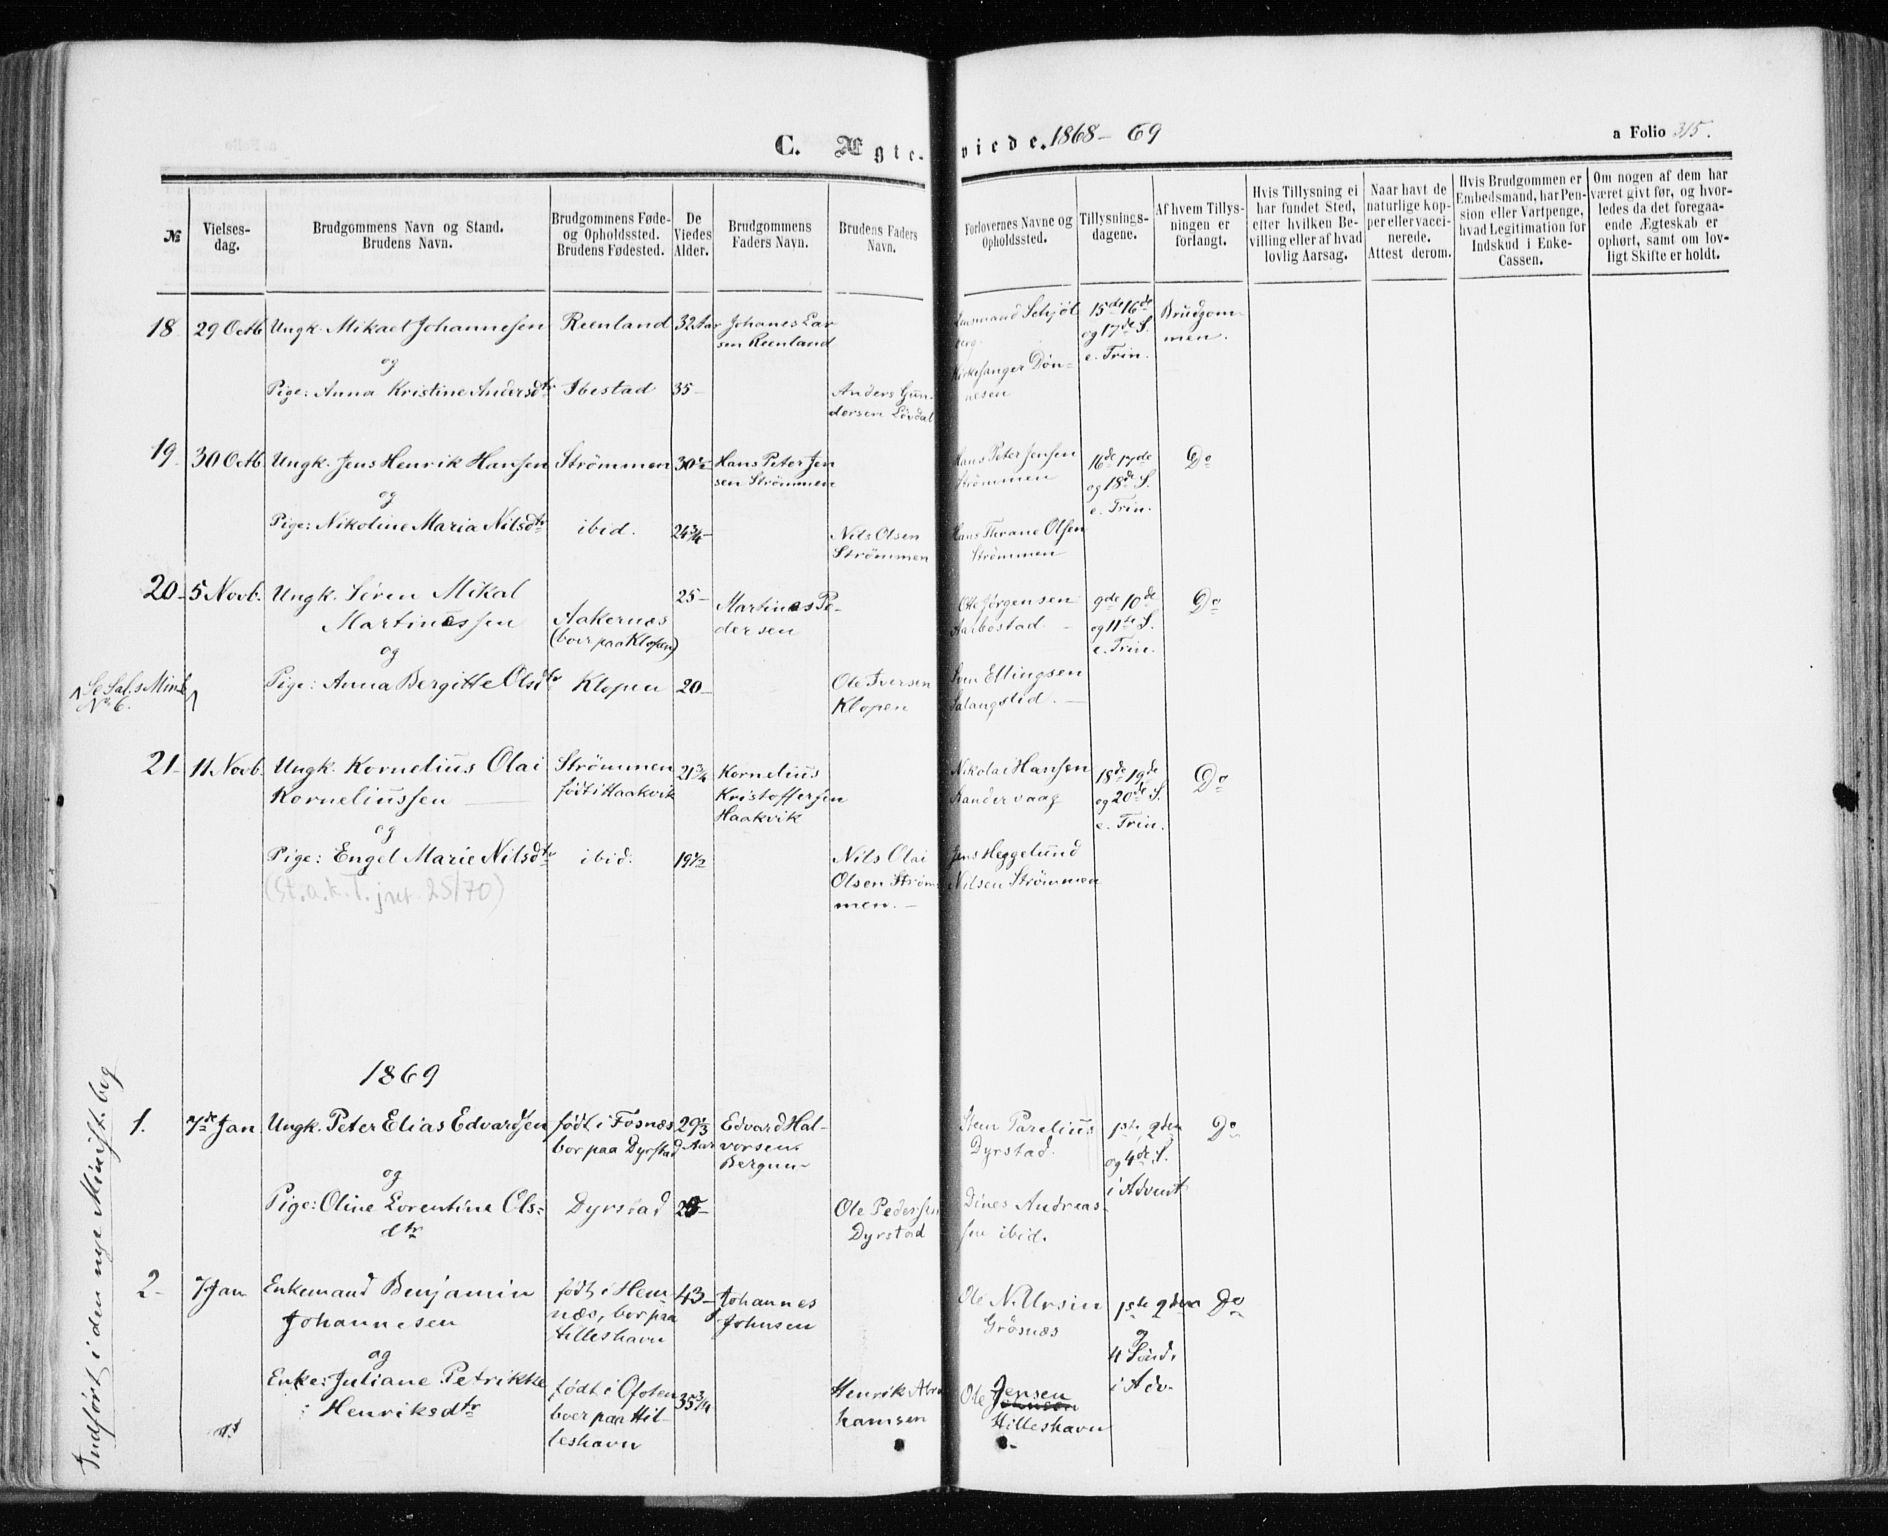 C. Ægteviede. 1868–69
a Folio 315.
№
Vielsesdag.
Brudgommens Navn og Stand. Brudens Navn.
Brudgommens Føde- og Opholdssted. Brudens Fødested.
De Viedes Alder.
Brudgommens Faders Navn.
Brudens Faders Navn.
Forlovernes Navne og Opholdssted.
Tillysningsdagene.
Af hvem Tillysningen er forlangt.
Hvis Tillysning ei har fundet Sted, efter hvilken Bevilling eller af hvad lovlig Aarsag.
Naar havt de naturlige kopper eller vaccinerede. Attest derom.
Hvis Brudgommen er Embedsmand, har Pension eller Vartpenge, hvad Legitimation for Indskud i Enke-Cassen.
Om nogen af dem har været givt før, og hvorledes da det foregaaende Ægteskab er ophørt, samt om lovligt Skifte er holdt.
18 29 Octb. Ungk. Mikael Johannesen Reenland 32 Aar Johanes Larsen Reenland
og
Pige: Anna Kristine Andersdtr Ibestad 35– Anders Gundersen Lövdal
Lensmand Schjölberg.
Kirkesanger Dønnesen
15de 16de og 17de S. e. Trin.
Brudgommen.
19. 30 Octb. Ungk. Jens Henrik Hansen Strömmen 30½ Hans Peter Jensen Strömmen
og
Pige: Nikoline Maria Nilsdtr ibid. 24¾– Nils Olsen Strömmen
Hans Peter Jensen Strömmen
Hans Thrane Olsen Strömmen
16de 17de og 18de S. e. Trin.
Do
20– 5 Novb. Ungk. Sören Mikal Martinussen Aakernæs (boer paa Klopen) 25– Martinus Pedersen
og
Pige: Anna Bergitte Olsdtr Klopen 20– Ole Iversen Klopen
Se Sal.s Minb No 6.
Ole Jörgensen Aarbostad –
Sven Ellingsen Salangslid. –
9de 10de og 11te S. e. Trin.
Do
21– 11 Novb. Ungk. Kornelius Olai Korneliussen Strömmen født i Haakvik 21¾ Kornelius Kristoffersen Haakvik
og
Pige: Engel Marie Nilsdtr ibid. 19½ Nils Olai Olsen Strömmen. –
(St.a.k.T. jnr. 25/70)
Nikolai Hansen Kandervaag
Jens Heggelund Nilsen Strömmen
18de 19de og 20de S. e. Trin.
Do
1869
Indført i den nye Minist. bog
1. 7de Jan Ungk. Peter Elias Edvardsen født i Fosnæs bor paa Dyrstad 29⅓ Aar Edvard Halvorsen
og
Pige: Oline Lorentina Olsdtr Dyrstad 25– Ole Pedersen Dyrstad
Sten Parelius Dyrstad.
Dines Andreassen ibid.
1ste, 2den og 4de S. i Advent
Do
2– 7 Jan Enkemand Benjamin Johannesen født i Hemnæs, bor paa Hilleshavn 43– Johannes Johnsen
og
Enke: Juliane Petrikke Henriksdtr født i Ofoten boer paa Hilleshavn 35¾ Henrik Abrahamsen
Ole N. Ursin Grøsnæs
Ole Jensen Hilleshavn
1ste 2den og 4 Sønd. i Adv.
Do